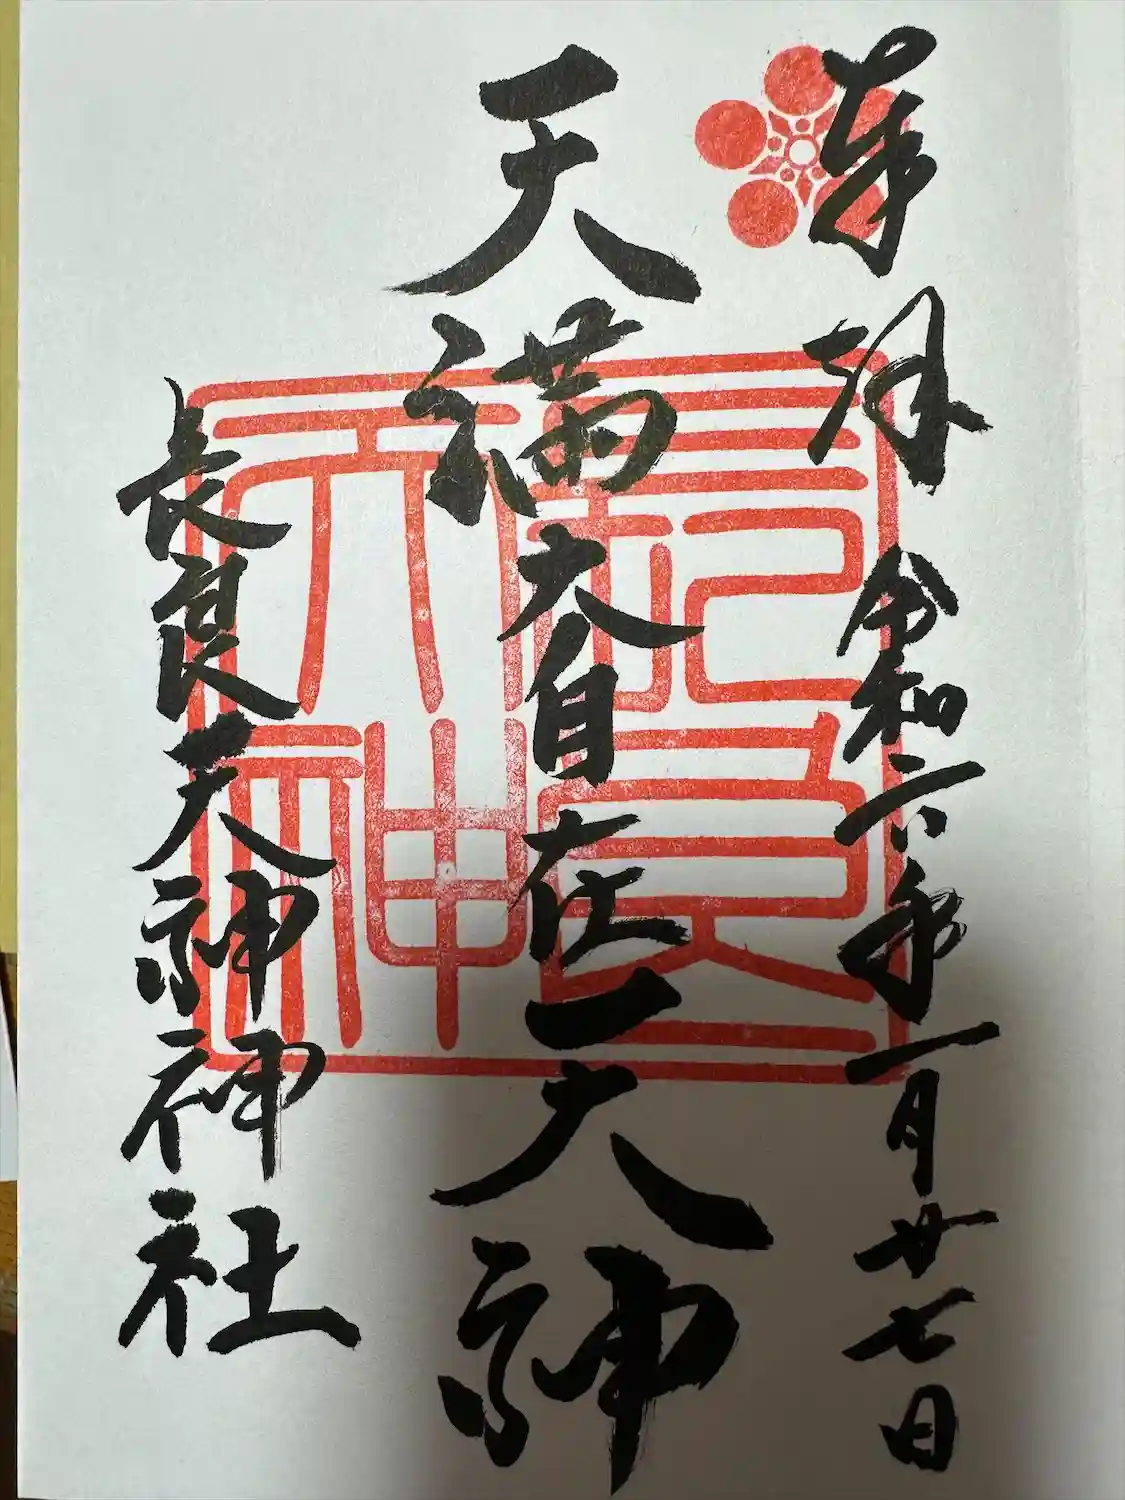 奉拝 令和六年一月廿七日
天満大自在天神
長良天神神社
長良天神